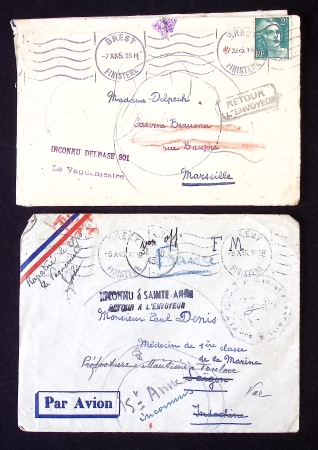 BREST
-7 XII 45. 15H
FINISTERE
BREST
FINISTERE
2F
RF
RETOUR
A L'ENVOYEUR
Madame Delpech
Caserne Beauveau
rue Beaupré
Marseille
INCONNU DELBASE 801
Le Vaguemestre
BREST
FINISTERE
non off
F M
BREST
FINISTERE
France
INCONNU à SAINTE-ANNE
RETOUR A L'ENVOYEUR
Monsieur Paul Denis
Médecin de 1ère classe
de la Marine
Préfecture Maritime Toulon
Saigon
Var
Indochine
Ste Anne
inconnus
Par Avion